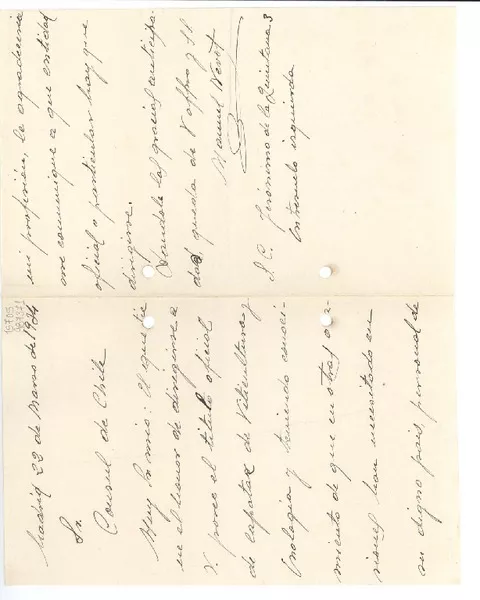 Madrid 23 de Marzo de 1934
Sr.
Consul de Chile
Muy Sr mio: El que tie
ne el honor de dirigirse a
V. posee el titulo oficial
de capataz de Viticultura y
Enologia y teniendo conoci-
miento de que en otras oca-
siones han necesitado en
su digno pais, personal de
mi profesión, le agradeceria
me comunique a que entidad
oficial o particular hay que
dirigirse.
Dandole las gracias anticipa-
das, queda de V affmo y S.S.
Manuel
S. C. Jerónimo de la Quintana 3
Entresuelo izquierda